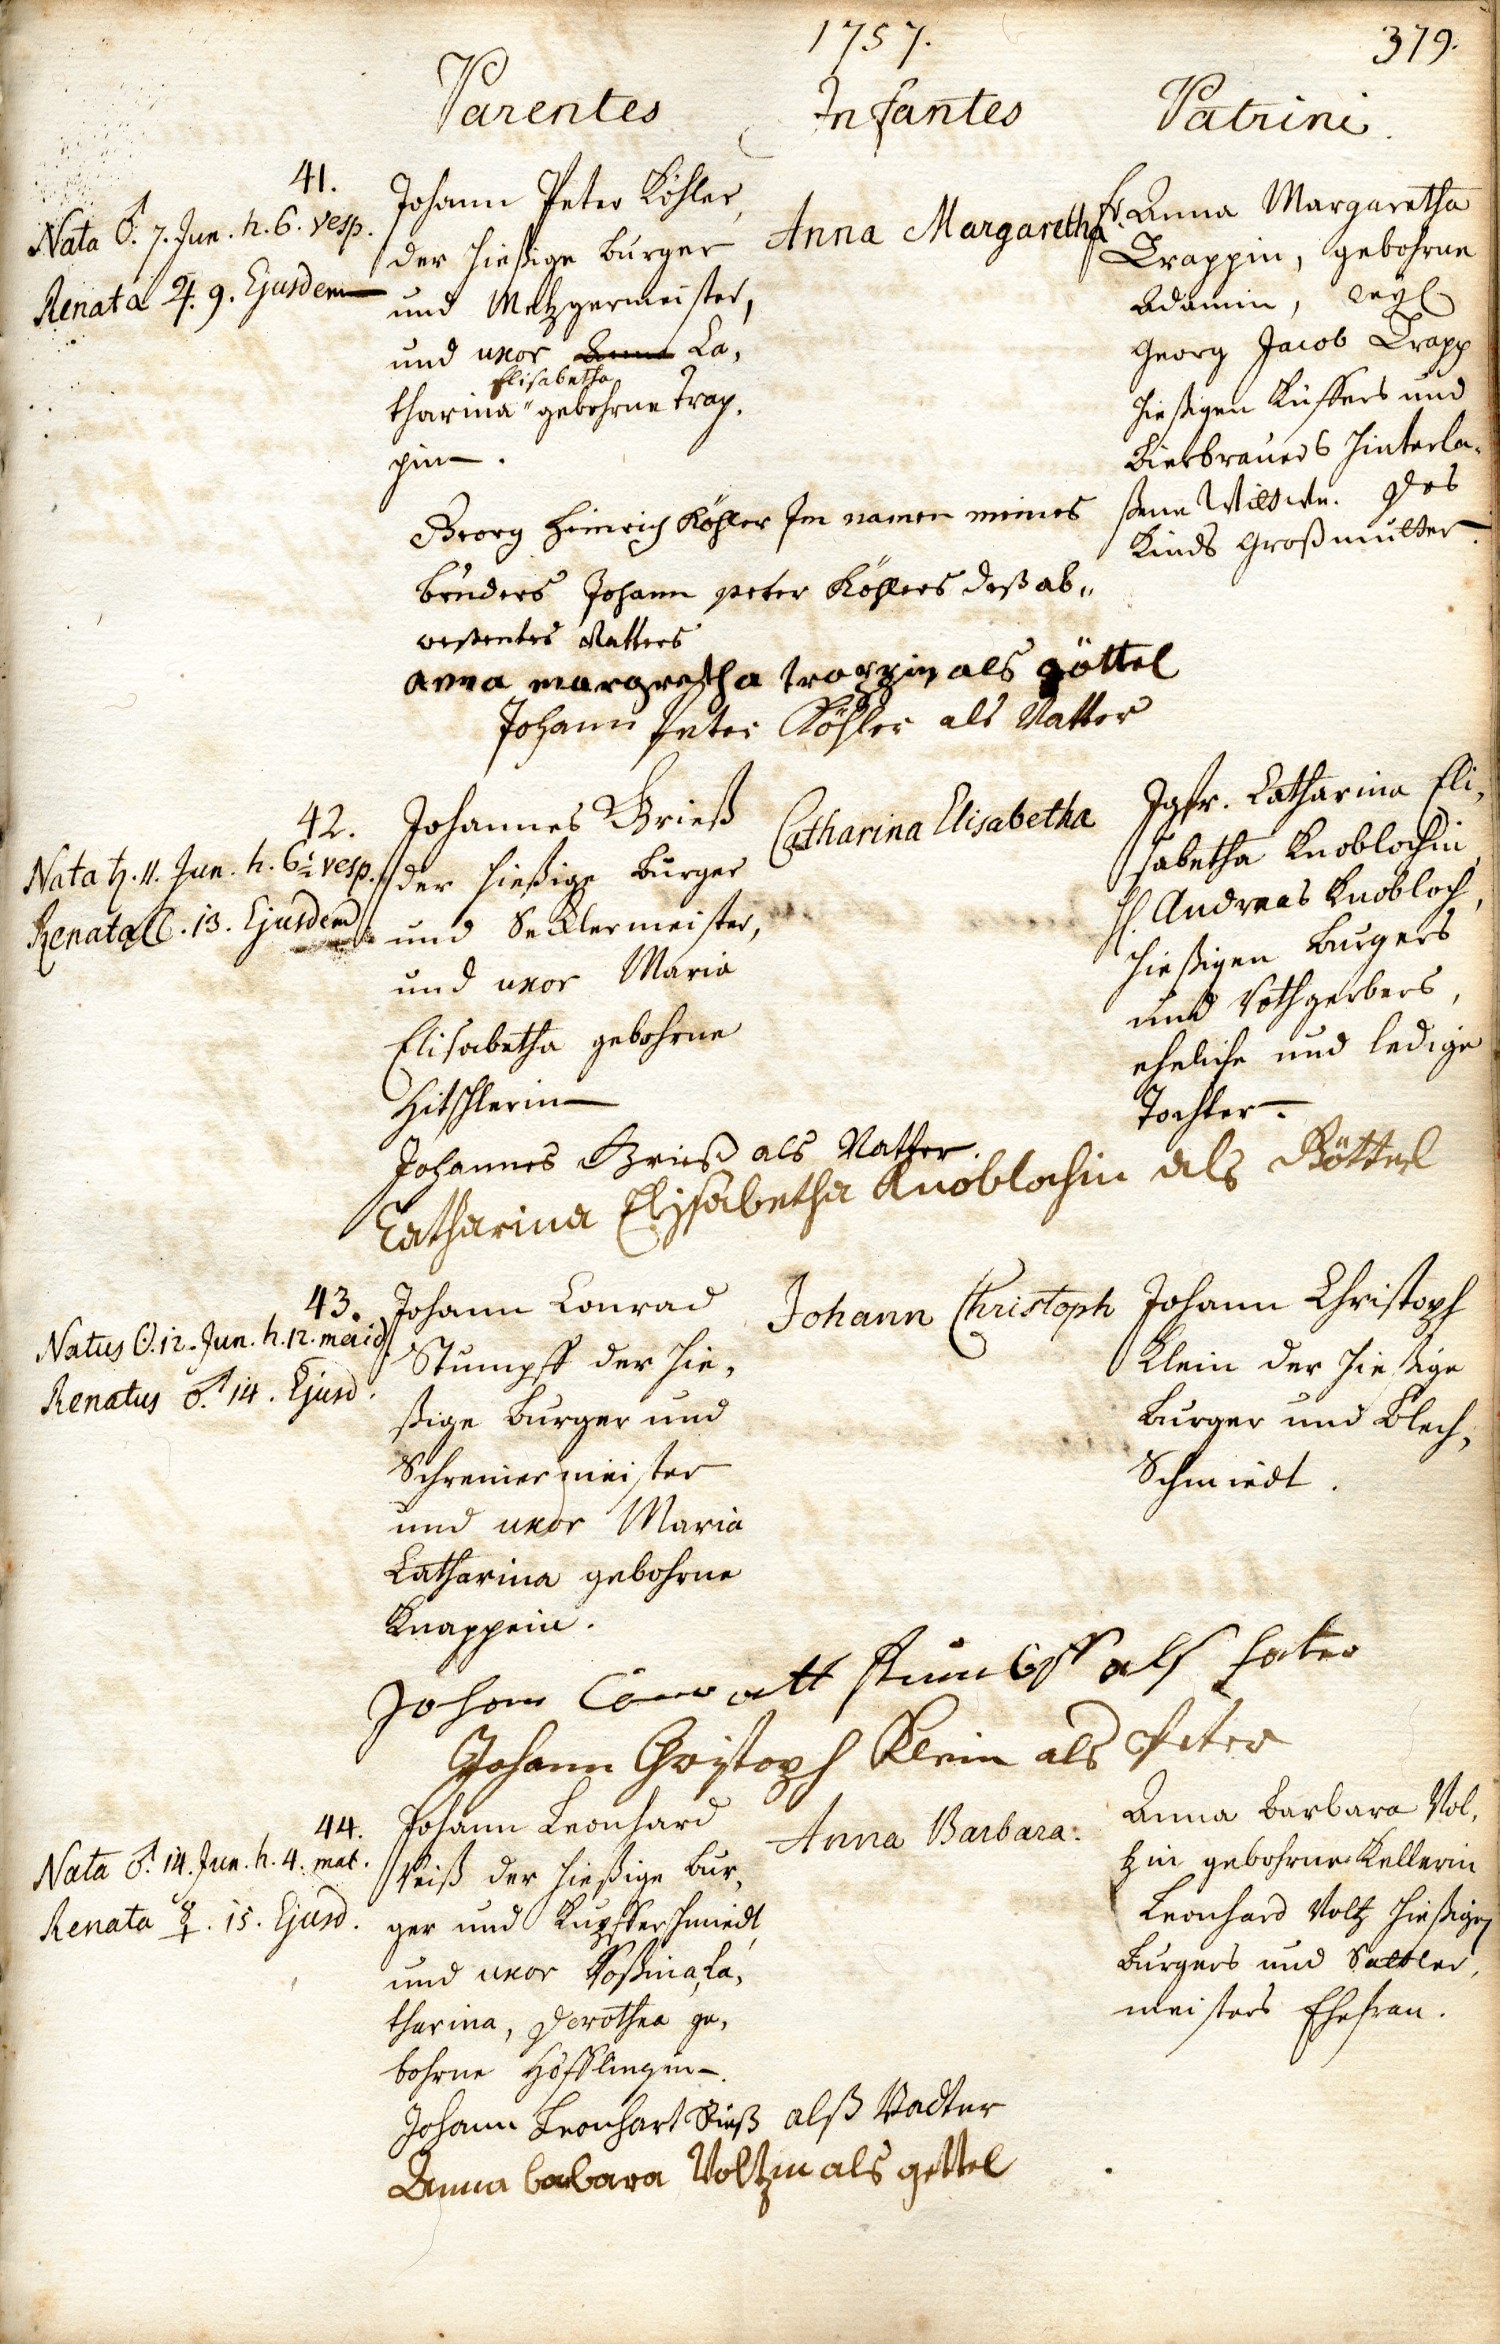 1757.
379.
Parentes
Infantes
Patrini.
41.
Nata ♂. 7. Jun. h. 6. vesp.
Renata ♃. 9. Ejusdem
Johann Peter Köhler,
der hießige burger
und Metzgermeister,
und uxor Anna Ca,
Elisabetha
tharina gebohrne Trap,
pin.
Anna Margaretha
Fr. Anna Margaretha
Trappin, gebohrne
Adamin, weyl
Georg Jacob Trapp
hießigen Küffers und
Bierbrauers hinterla,
ßene Wittwe. Des
Kinds Großmutter.
Georg Heinrich Köhler Im namen meines
bruders Johann peter Köhlers deß ab„
weßentes Vatters
anna margretha trappin als göttel
Johann Peter Köhler als Vatter
42.
Nata ♄. 11. Jun. h. 6½ vesp.
Renata ☾. 13. Ejusdem
Johannes Grieß
der hießige burger
und Secklermeister,
und uxor Maria
Elisabetha gebohrne
Hitschlerin
Catharina Elisabetha
Jgfr. Catharina Eli,
sabetha Knoblochin,
H. Andreas Knobloch,
hießigen burgers
und Rothgerbers,
eheliche und ledige
Tochter.
Johannes Grieß als Vatter.
Catharina Elisabetha Knoblochin als Göttel
43.
Natus ☉. 12. Jun. h. 12. merid
Renatus ♂. 14. Ejusd.
Johann Conrad
Stumpff der hie,
ßige burger und
Schreinermeister
und uxor Maria
Catharina gebohrne
Knappein.
Johann Christoph
Johann Christoph
Klein der hießige
burger und Blech,
Schmiedt.
Johann als
Johann Christoph Klein als Peter
44.
Nata ♂. 14. Jun. h. 4. mat.
Renata ☿. 15. Ejusd.
Johann Leonhard
Reiß der hießige bur,
ger und Kupfferschmiedt,
und uxor Roßina, Ca,
tharina, Dorothea ge,
bohrne Höfflingin.
Anna Barbara.
Anna barbara Vol,
tzin gebohrne Kellerin
Leonhard Voltz hießigen
burgers und Sattler,
meisters Ehefrau.
Johann Leonhart Reiß alß Vadter
Anna babara Voltzin als gettel